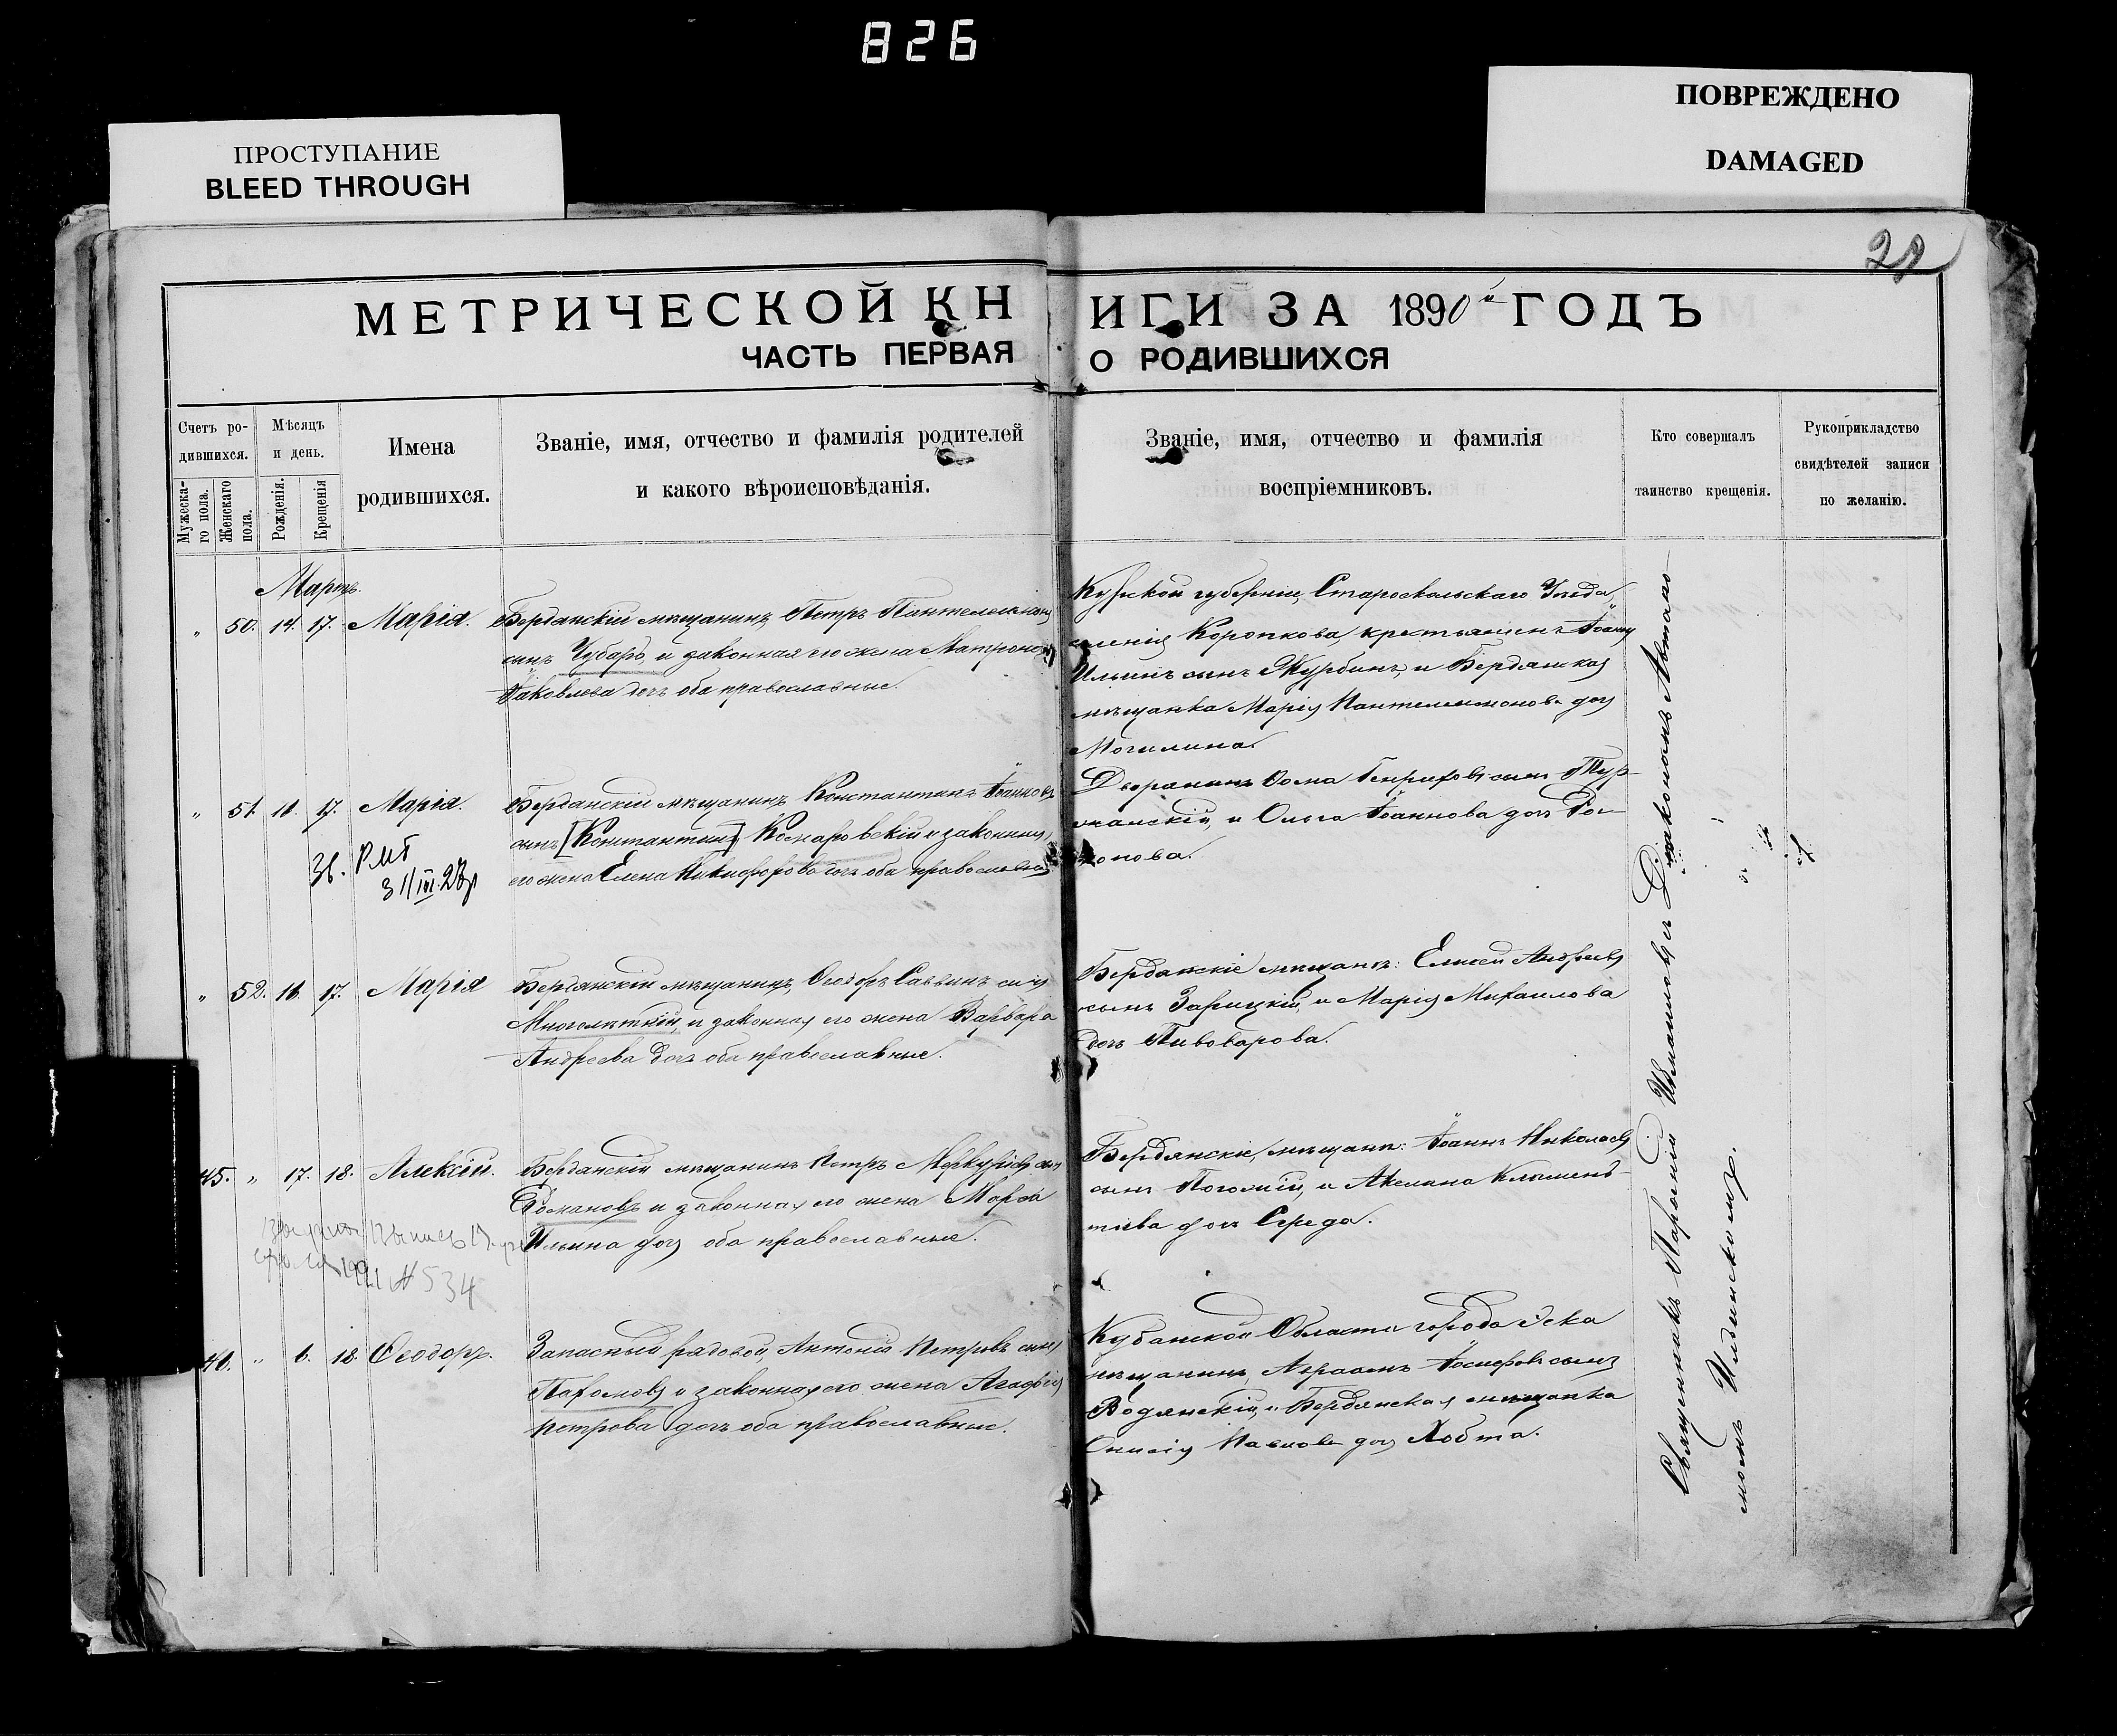 826
ПРОСТУПАНИЕ
BLEED THROUGH
ПОВРЕЖДЕНО
DAMAGED
28
МЕТРИЧЕСКОЙ КНИГИ ЗА 1890й ГОДЪ
ЧАСТЬ ПЕРВАЯ О РОДИВШИХСЯ
Счетъ ро-
дившихся.
Мужеска-
го пола.
Женскаго
пола.
Мѣсяцъ
и день.
Рожденія.
Крещенія
Имена
родившихся.
Званіе, имя, отчество и фамилія родителей
и какого вѣроисповѣданія.
Званіе, имя, отчество и фамилія
воспріемниковъ.
Кто совершалъ
таинство крещенія.
Рукоприкладство
свидѣтелей записи
по желанію.
Мартъ.
" 50. 14. 17. Марія. Бердянскій мѣщанинъ Петръ Пантелеимоновъ
сынъ Чубарь и законная его жена Матрона
Іаковлева дочь оба православные.
Курской губерніи, Старооскольскаго Уѣзда,
селенія Коропкова, крестьянинъ Іоаннъ
Ильинъ сынъ Журбинъ, и Бердянская
мѣщанка Марія Пантелеимонова дочь
Могилина.
" 51. 16. 17. Марія. Бердянскій мѣщанинъ Константинъ Іоанновъ
сынъ [Константинъ] Комаровскій и законная
его жена Елена Никифорова дочь оба православные
36. 31/III.28
Дворянинъ Ѳома Генриховъ сынъ Тур-
и Ольга Іоаннова дочь
" 52. 16. 17. Марія Бердянскій мѣщанинъ, Ѳеодоръ Саввинъ сынъ
Многолѣтній, и законная его жена Варвара
Андреева дочь оба православные.
Бердянскіе мѣщане: Елисей Андреевъ
сынъ Зарицкій, и Марія Михаилова
дочь Пивоварова.
45. " 17. 18. Алексій. Бердянскій мѣщанинъ Петръ Меркуріевъ сынъ
Романовъ и законная его жена Марѳа
Ильина дочь оба православные.
1921 № 534
Бердянскіе, мѣщане: Іоаннъ Николаевъ
сынъ и Акелина Климен-
тіева дочь Середа.
46. " 6. 18. Ѳеодоръ. Запасный рядовой, Антоній Петровъ сынъ
Пахомовъ и законная его жена Агафія
Петрова дочь оба православные.
Кубанской Области города Эска
мѣщанинъ, Авраамъ Іосифовъ сынъ
Водянскій, и Бердянская мѣщанка
Онисія Павлова дочь Лобта.
Священникъ Парѳеній съ Діакономъ